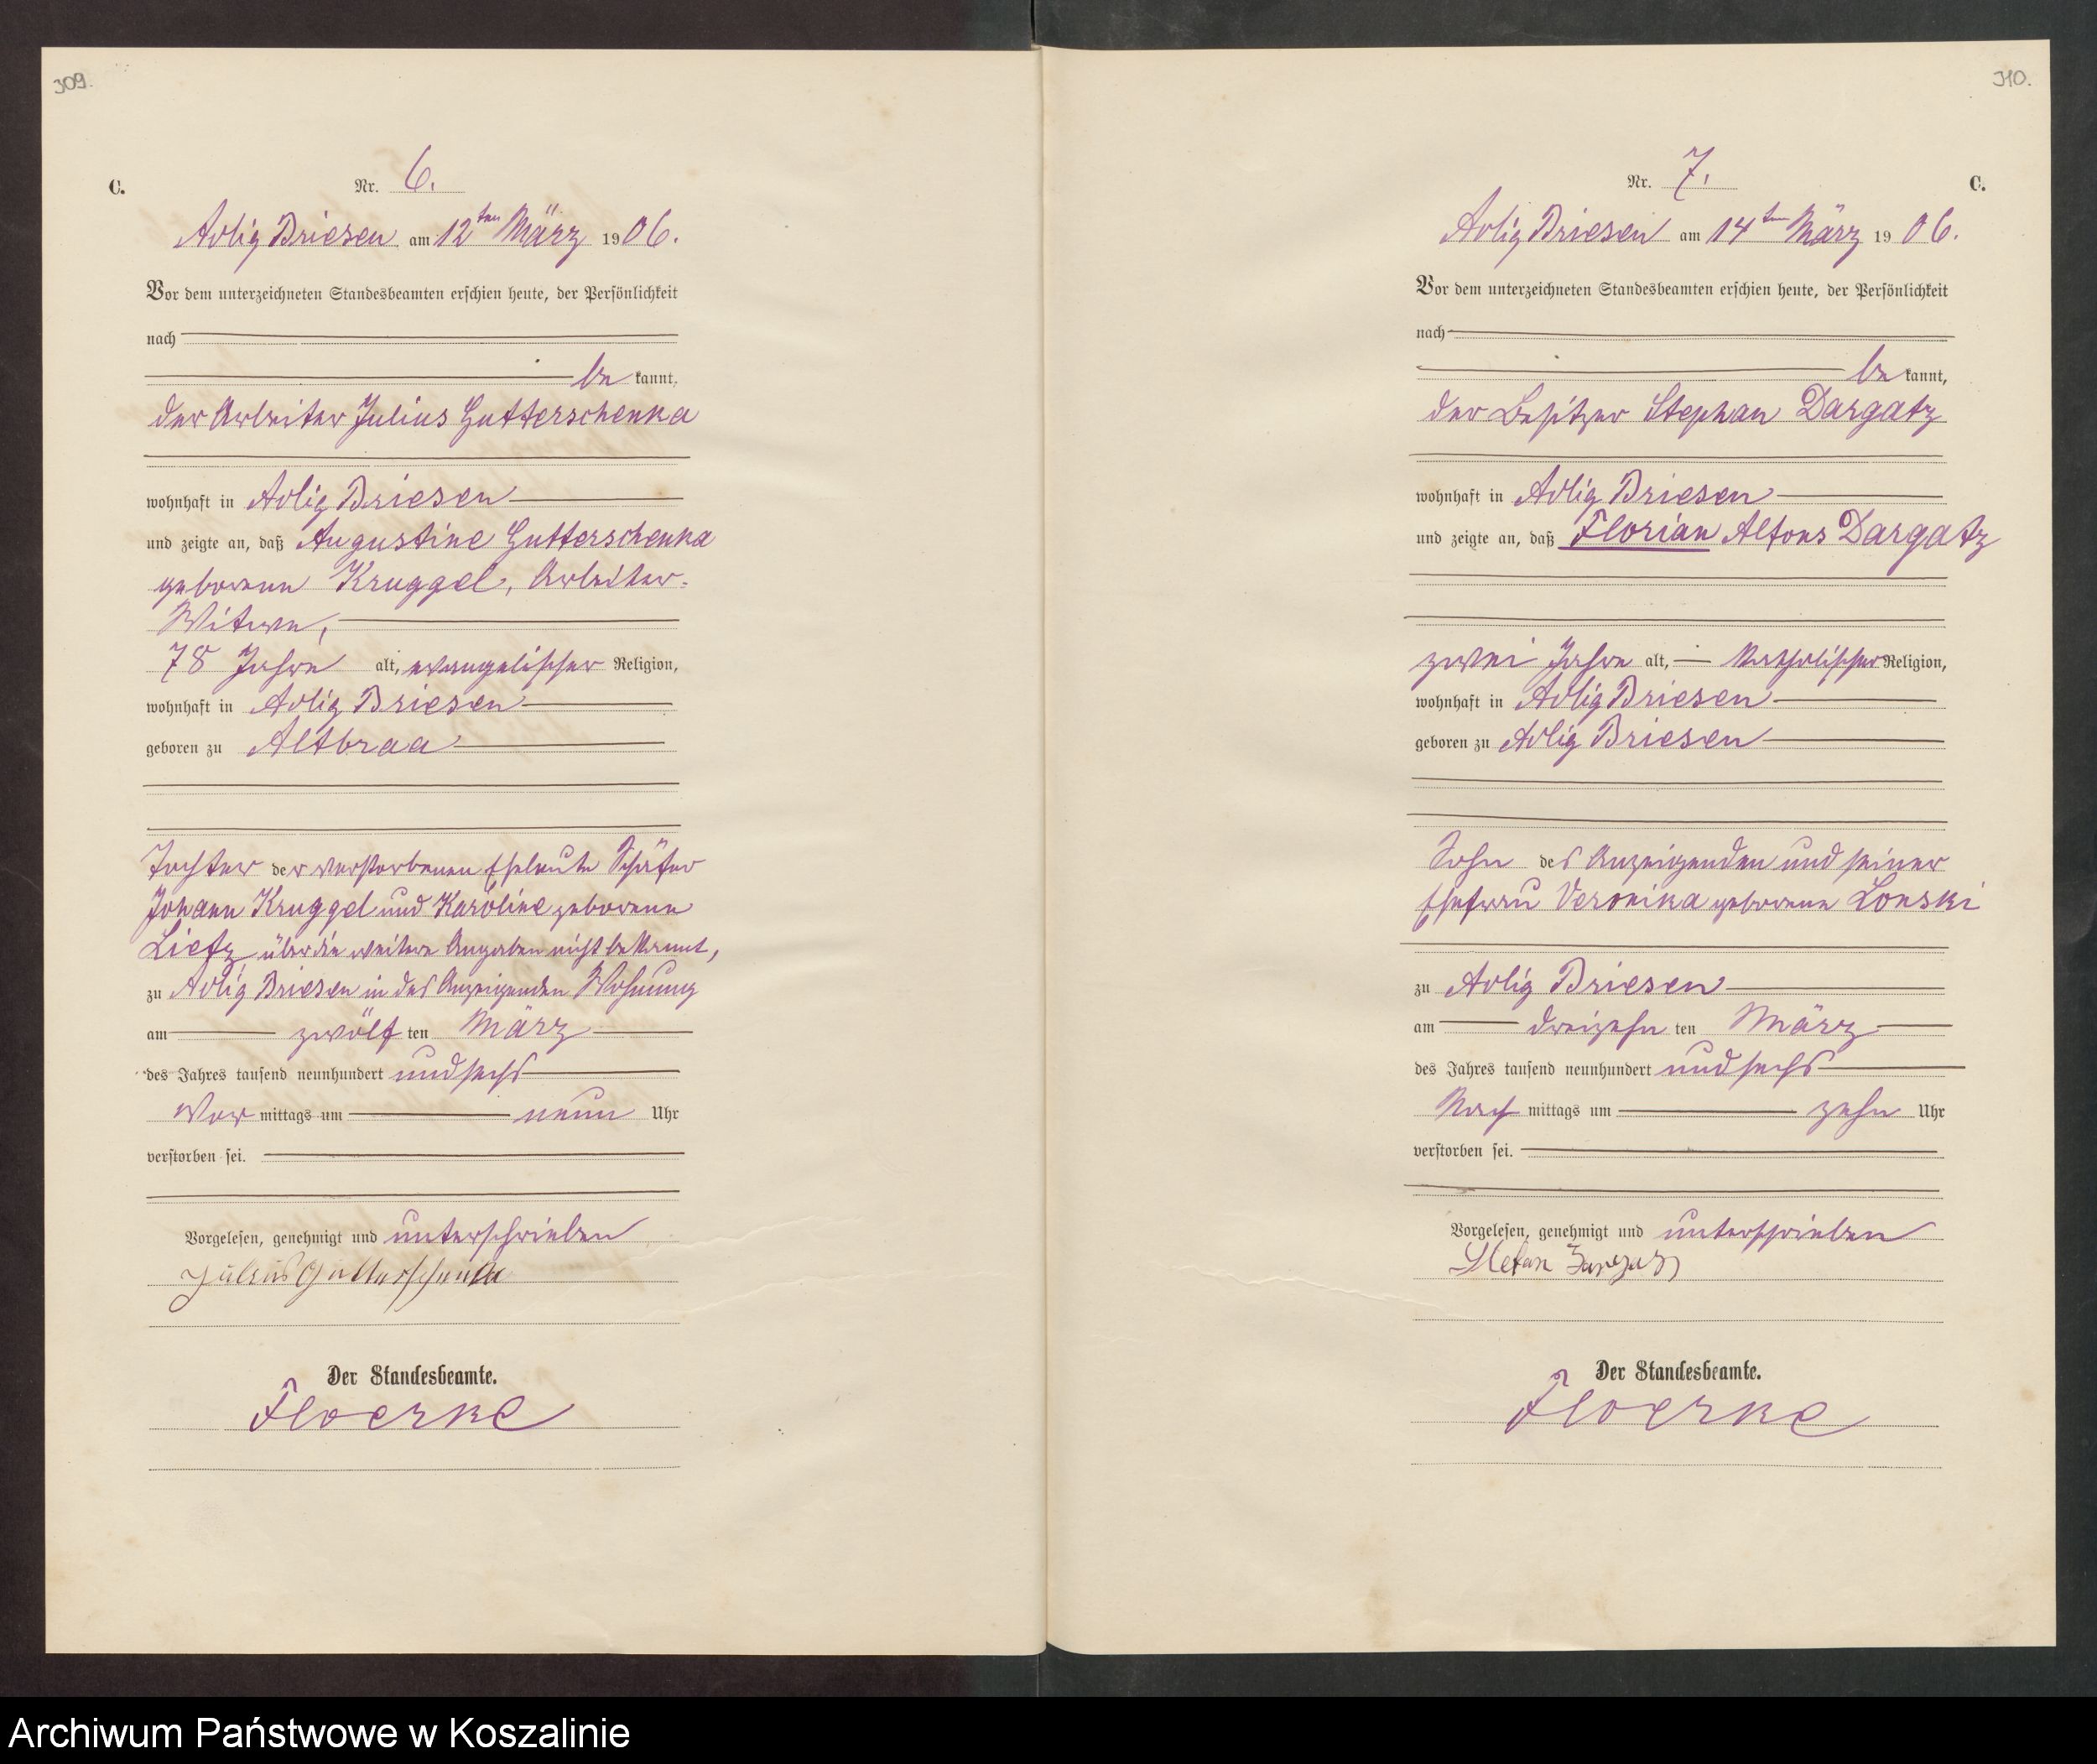 309.
C.
Nr. 6.
Adlig Briesen am 12ten März 1906.
Vor dem unterzeichneten Standesbeamten erschien heute, der Persönlichkeit
nach
be kannt,
der Arbeiter Julius Gutterschenka
wohnhaft in Adlig Briesen
und zeigte an, daß Augustine Gutterschenka
geborene Kruggel, Arbeiter-
Witwe,
78 Jahre alt, evangelischer Religion,
wohnhaft in Adlig Briesen
geboren zu Altbraa
Tochter der verstorbenen Eheleute Schäfer
Johann Kruggel und Karoline geborene
Lietz, über die weitere Angaben nicht bekannt,
zu Adlig Briesen in des Anzeigenden Wohnung
am zwölf ten März
des Jahres tausend neunhundert und sechs
Vor mittags um neun Uhr
verstorben sei.
Vorgelesen, genehmigt und unterschrieben
Julius Gutterschenka
Der Standesbeamte.
Floerke
310.
C.
Nr. 7.
Adlig Briesen am 14ten März 1906.
Vor dem unterzeichneten Standesbeamten erschien heute, der Persönlichkeit
nach
be kannt,
der Besitzer Stephan Dargatz
wohnhaft in Adlig Briesen
und zeigte an, daß Florian Alfons Dargatz
zwei Jahre alt, katholischer Religion,
wohnhaft in Adlig Briesen
geboren zu Adlig Briesen
Sohn des Anzeigenden und seiner
Ehefrau Veronika geborene Lonski
zu Adlig Briesen
am dreizehn ten März
des Jahres tausend neunhundert und sechs
Nach mittags um zehn Uhr
verstorben sei.
Vorgelesen, genehmigt und unterschrieben
Stefan Dargatz
Der Standesbeamte.
Floerke
Archiwum Państwowe w Koszalinie